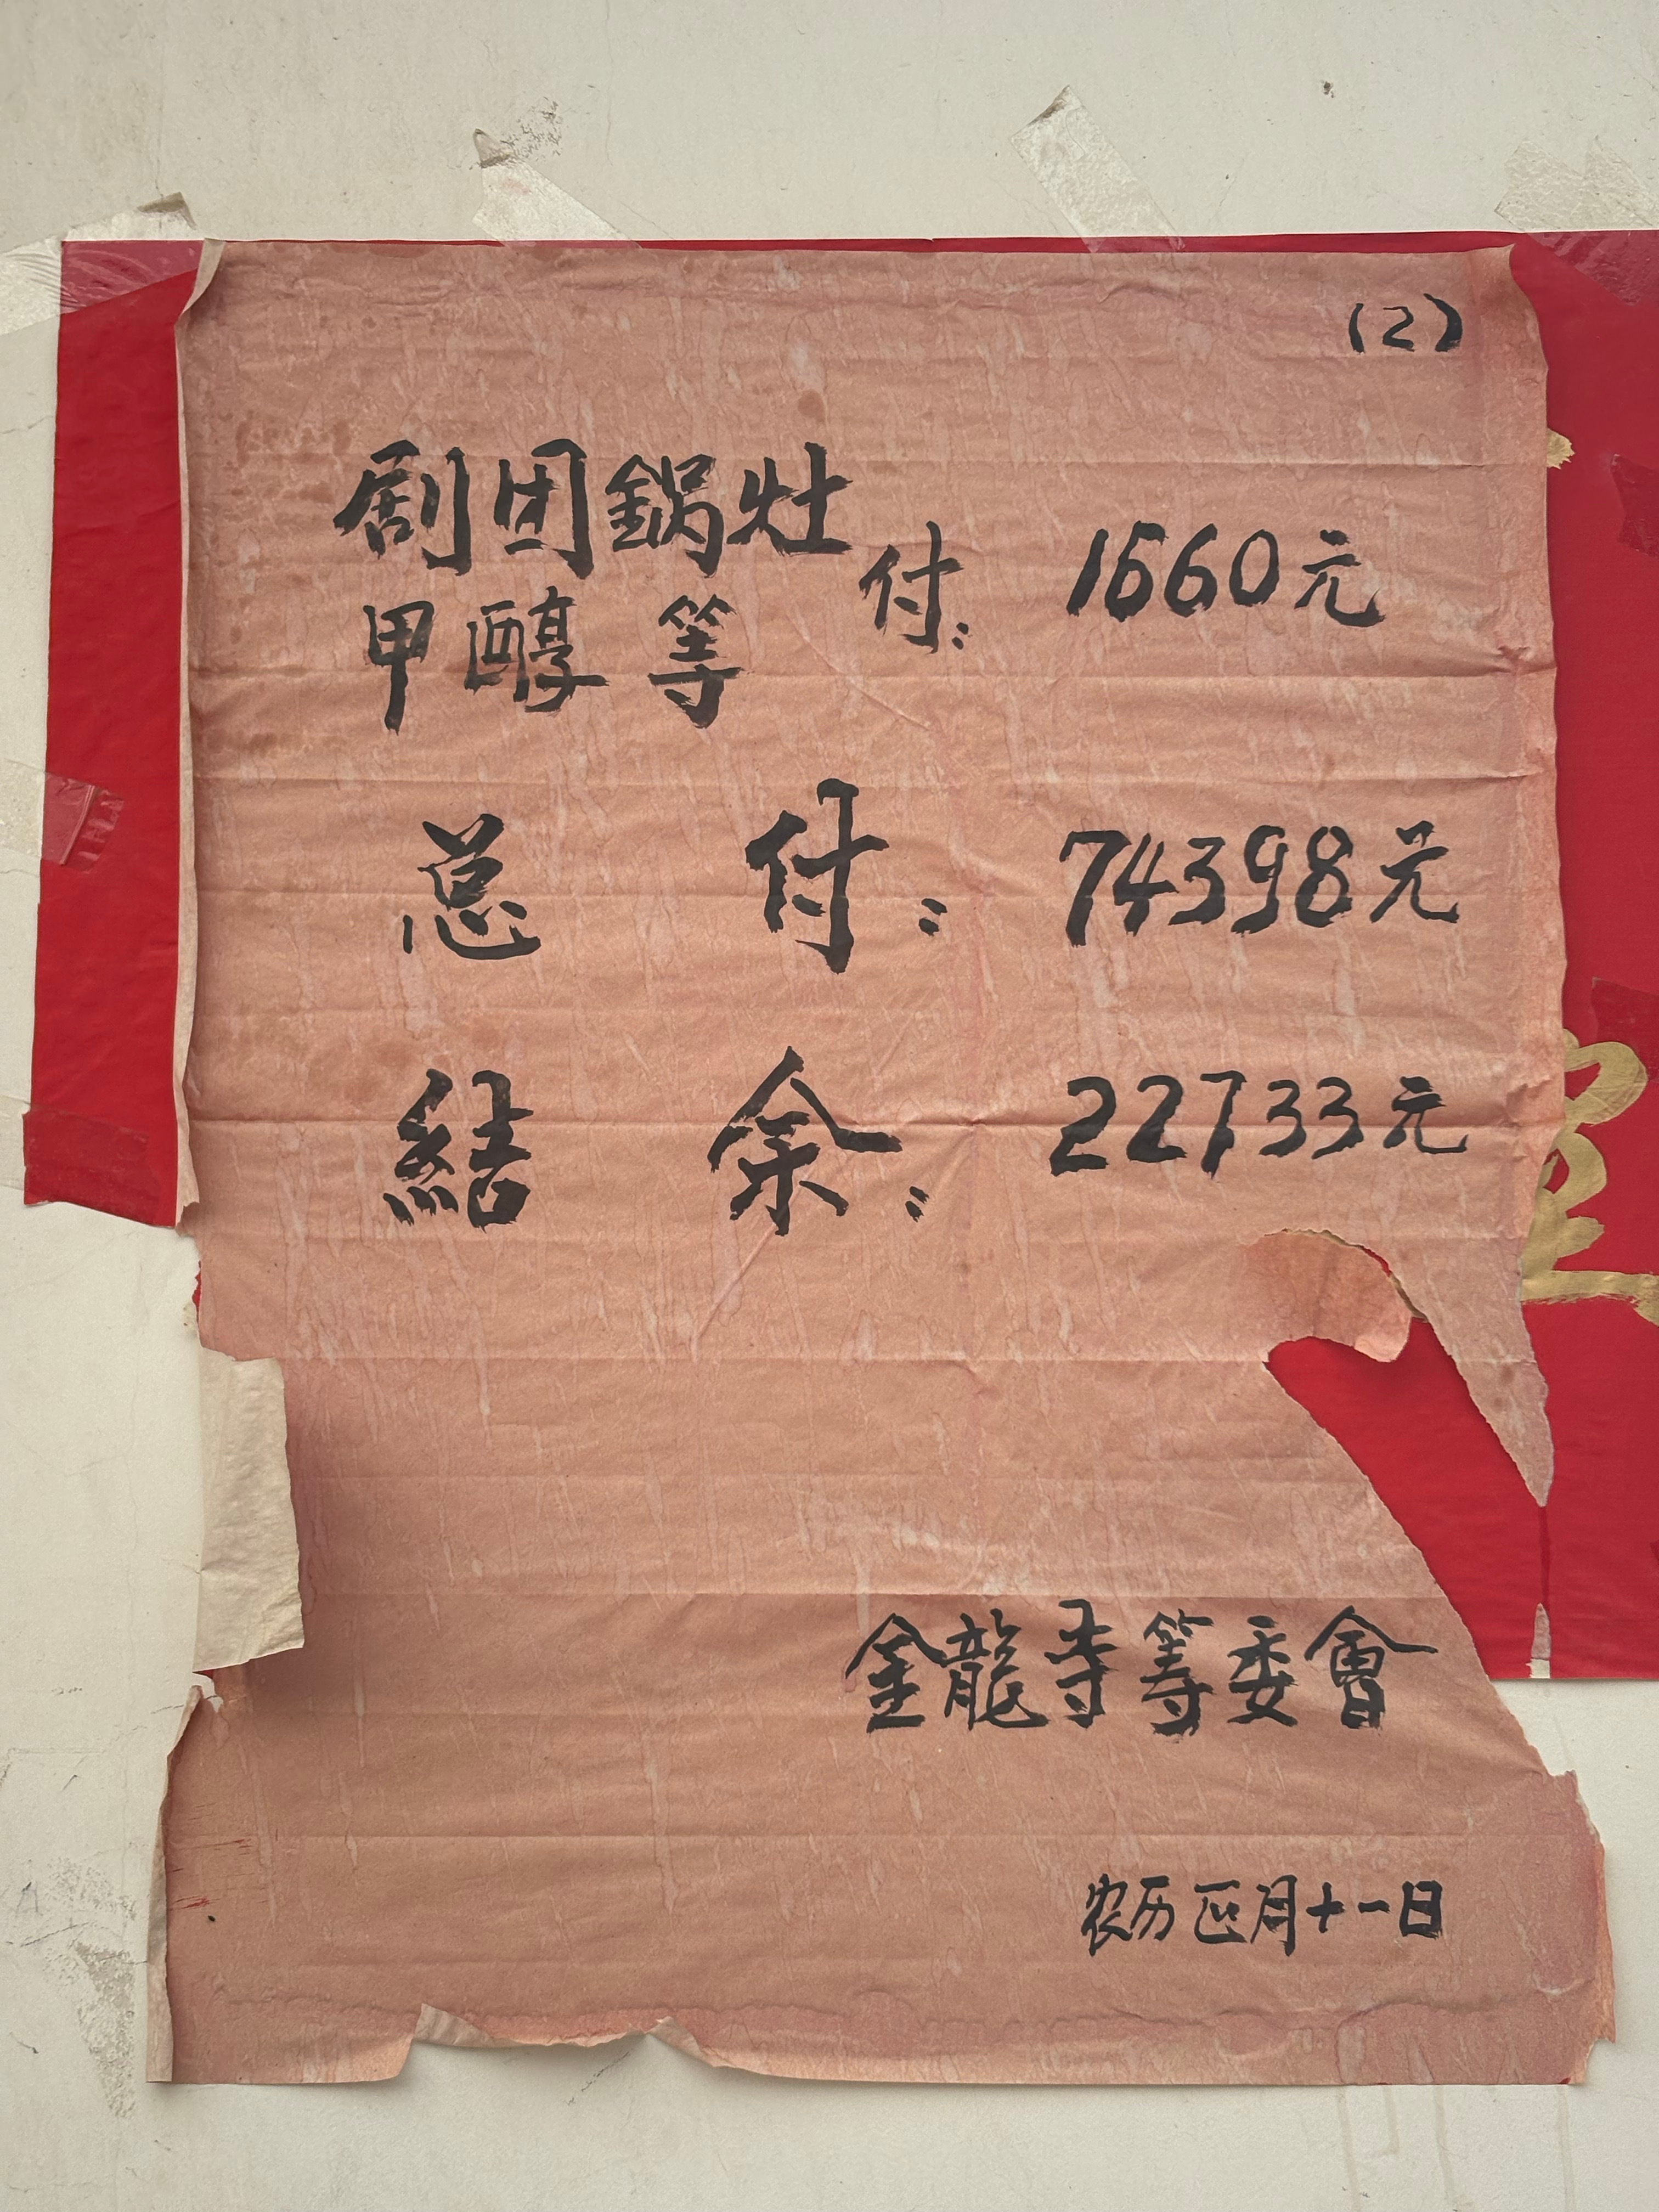 (2)
剧团鍋灶
甲醇等 付: 1560元
总 付: 74398元
結 余: 22733元
金龍寺筹委會
农历正月十一日